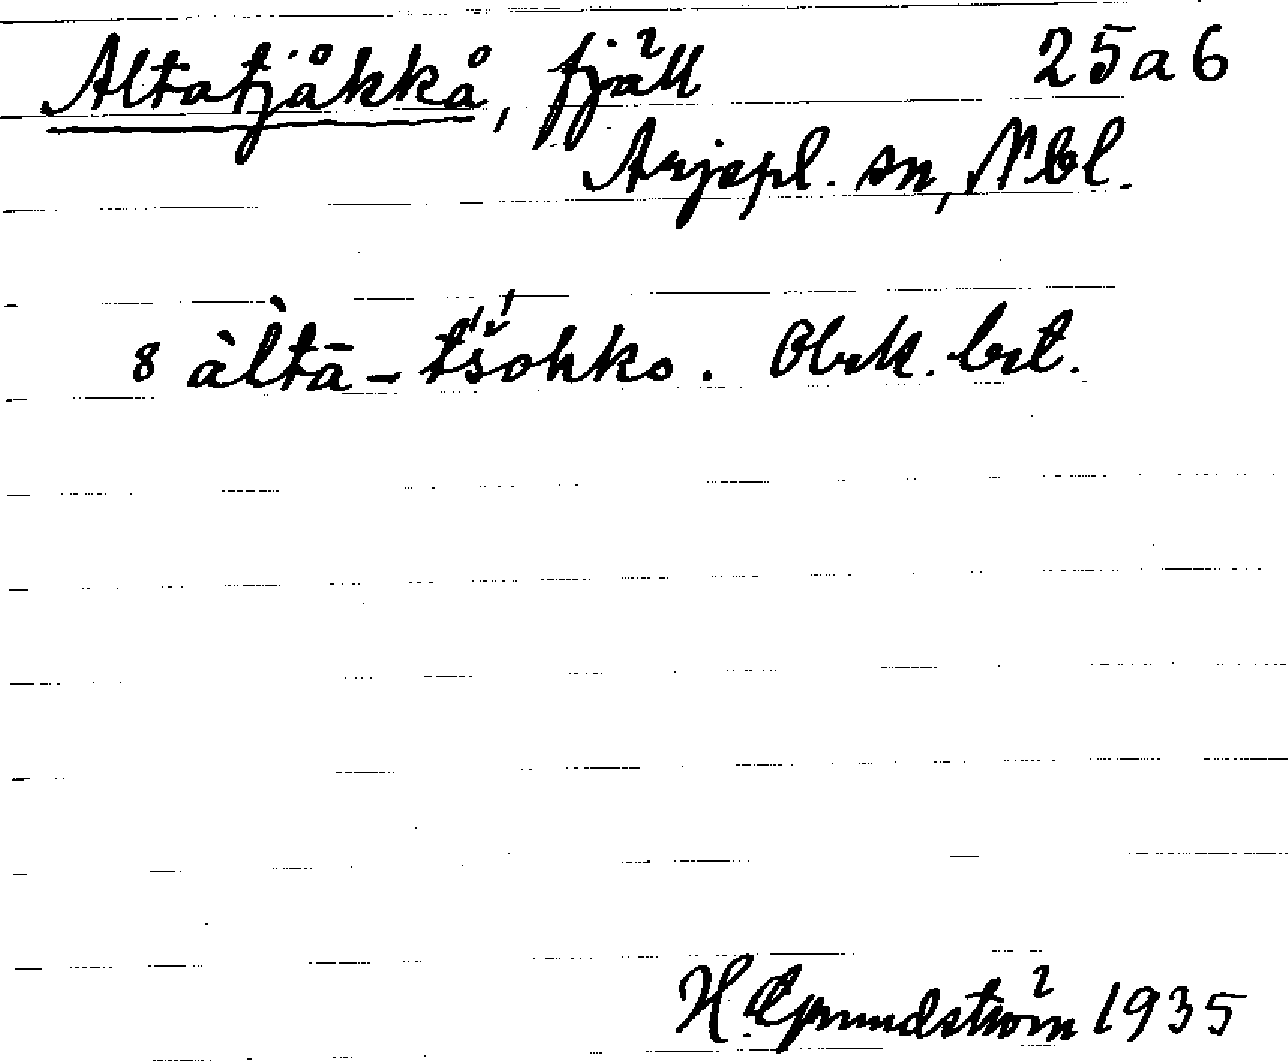 Altatjåkkå, fjäll 25a6
Arjepl. sn, Nbl.
8 àl̀tā-tš́ohko. Obrk. brt.
H. Grundström 1935